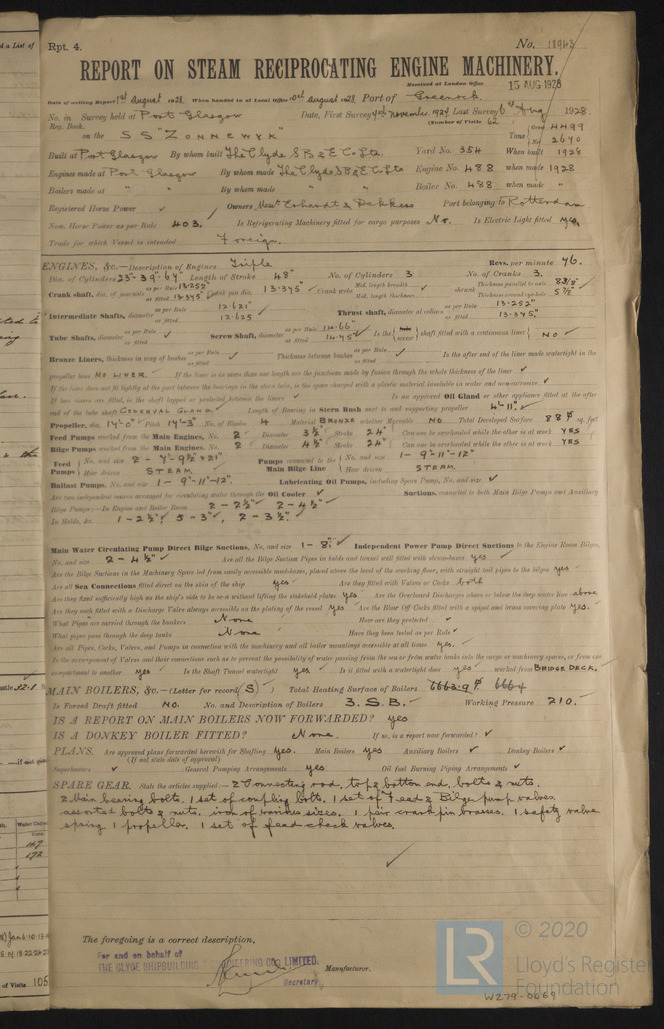 Rpt. 4.
No. 18943
REPORT ON STEAM RECIPROCATING ENGINE MACHINERY.
Received at London Office 15 AUG 1928
Date of writing Report 1st August 1928 When handed in at Local Office 10th August 1928 Port of Greenock
No. in Survey held at Port Glasgow Date, First Survey November 1927 Last Survey 6th Aug 1928
Reg. Book. (Number of Visits 62
on the S S "ZONNEWYK" Tons Gross 4499
Net 2640
Built at Port Glasgow By whom built The Clyde S B & E Co Ltd Yard No. 354 When built 1928
Engines made at Port Glasgow By whom made The Clyde S B & E Co Ltd Engine No. 488 when made 1928
Boilers made at " " By whom made " " Boiler No. 488 when made "
Registered Horse Power Owners Port belonging to Rotterdam
Nom. Horse Power as per Rule 403. Is Refrigerating Machinery fitted for cargo purposes No. Is Electric Light fitted yes
Trade for which Vessel is intended Foreign.
ENGINES, &c.—Description of Engines Triple Revs. per minute 76.
Dia. of Cylinders 23"-39"-64" Length of Stroke 48" No. of Cylinders 3 No. of Cranks 3.
Crank shaft, dia. of journals as per Rule 13.252" as fitted 13.375" Crank pin dia. 13.375" Crank webs Mid. length breadth Mid. length thickness shrunk Thickness parallel to axis 8 3/8" Thickness around eyehole 5 7/8"
Intermediate Shafts, diameter as per Rule 12.621" as fitted 12.625 Thrust shaft, diameter at collars as per Rule 13.252" as fitted 13.375"
Tube Shafts, diameter as per Rule as fitted Screw Shaft, diameter as per Rule 14.66" as fitted Is the tube screw shaft fitted with a continuous liner No
Bronze Liners, thickness in way of bushes as per Rule as fitted Thickness between bushes as per Rule as fitted Is the after end of the liner made watertight in the
propeller boss NO LINER. If the liner is in more than one length are the junctions made by fusion through the whole thickness of the liner
If the liner does not fit tightly at the part between the bearings in the stern tube, is the space charged with a plastic material insoluble in water and non-corrosive
If two liners are fitted, is the shaft lapped or protected between the liners Is an approved Oil Gland or other appliance fitted at the after
end of the tube shaft CEDERVAL GLAND. Length of Bearing in Stern Bush next to and supporting propeller 4'-11"
Propeller, dia. 17'-0" Pitch 17'-3" No. of Blades 4 Material BRONZE whether Moveable NO Total Developed Surface 88 sq. feet
Feed Pumps worked from the Main Engines, No. 2 Diameter 3 1/2" Stroke 24" Can one be overhauled while the other is at work YES
Bilge Pumps worked from the Main Engines, No. 2 Diameter 4 1/2" Stroke 24" Can one be overhauled while the other is at work YES
Feed Pumps No. and size 2 - 7"-9 1/2"x21" Pumps connected to the Main Bilge Line No. and size 1- 9"-11"-12"
How driven STEAM How driven STEAM.
Ballast Pumps, No. and size 1- 9"-11"-12" Lubricating Oil Pumps, including Spare Pump, No. and size
Are two independent means arranged for circulating water through the Oil Cooler Suctions, connected to both Main Bilge Pumps and Auxiliary
Bilge Pumps;—In Engine and Boiler Room 2 - 2 1/2" 2 - 4 1/2"
In Holds, &c. 1 - 2 1/2", 5 - 3", 2 - 3 1/2"
Main Water Circulating Pump Direct Bilge Suctions, No. and size 1- 8" Independent Power Pump Direct Suctions to the Engine Room Bilges,
No. and size 2 - 4 1/2" Are all the Bilge Suction Pipes in holds and tunnel well fitted with strum-boxes yes
Are the Bilge Suctions in the Machinery Space led from easily accessible mud-boxes, placed above the level of the working floor, with straight tail pipes to the bilges yes
Are all Sea Connections fitted direct on the skin of the ship yes Are they fitted with Valves or Cocks both
Are they fixed sufficiently high on the ship's side to be seen without lifting the stokehold plates yes Are the Overboard Discharges above or below the deep water line above
Are they each fitted with a Discharge Valve always accessible on the plating of the vessel yes Are the Blow Off Cocks fitted with a spigot and brass covering plate yes.
What Pipes are carried through the bunkers None How are they protected
What pipes pass through the deep tanks None Have they been tested as per Rule
Are all Pipes, Cocks, Valves, and Pumps in connection with the machinery and all boiler mountings accessible at all times yes.
Is the arrangement of Valves and their connections such as to prevent the possibility of water passing from the sea or from water tanks into the cargo or machinery spaces, or from one
compartment to another yes Is the Shaft Tunnel watertight yes Is it fitted with a watertight door yes worked from BRIDGE DECK.
MAIN BOILERS, &c.—(Letter for record S) Total Heating Surface of Boilers
Is Forced Draft fitted No. No. and Description of Boilers 3. S.B. Working Pressure 210.
IS A REPORT ON MAIN BOILERS NOW FORWARDED? yes
IS A DONKEY BOILER FITTED? None. If so, is a report now forwarded?
PLANS. Are approved plans forwarded herewith for Shafting yes. Main Boilers yes Auxiliary Boilers Donkey Boilers
(If not state date of approval)
Superheaters General Pumping Arrangements yes Oil fuel Burning Piping Arrangements
SPARE GEAR. State the articles supplied:— 2 Connecting rod, top & bottom end, bolts & nuts.
2 Main bearing bolts. 1 set of coupling bolts. 1 set of Feed & Bilge pump valves
assorted bolts & nuts. iron of various sizes. 1 pair crank pin brasses. 1 safety valve
spring 1 propeller. 1 set of feed check valves.
The foregoing is a correct description,
For and on behalf of
THE CLYDE SHIPBUILDING & ENGINEERING CO., LIMITED.
Manufacturer.
Secretary
LR © 2020
Lloyd's Register
Foundation
W279-0069